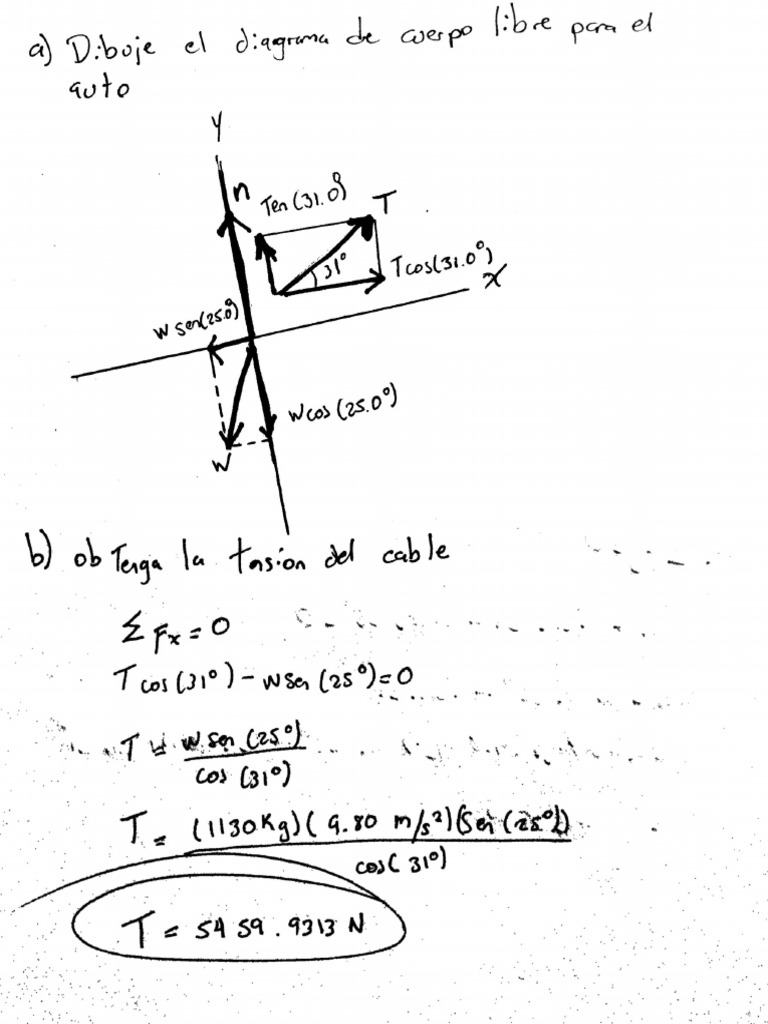 a) Dibuje el diagrama de cuerpo libre para el
auto
y
n
Ten (31.0°)
T
31°
Tcos(31.0°)
x
W sen(25.0°)
Wcos (25.0°)
W
b) obTenga la tensión del cable
Σ Fx = 0
T cos (31°) - wsen (25°) = 0
T = w sen (25°)
cos (31°)
T = (1130Kg)( 9.80 m/s²)(Sen (25°))
cos( 31°)
T = 5459.9313 N